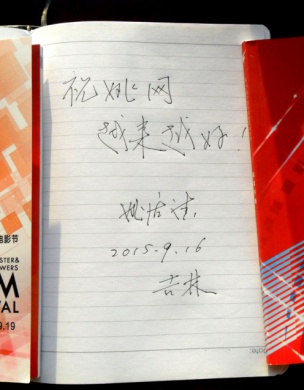 祝姚网
越来越好!
2015.9.16
吉林
电影节
STER&
WERS
M
VAL
9.19